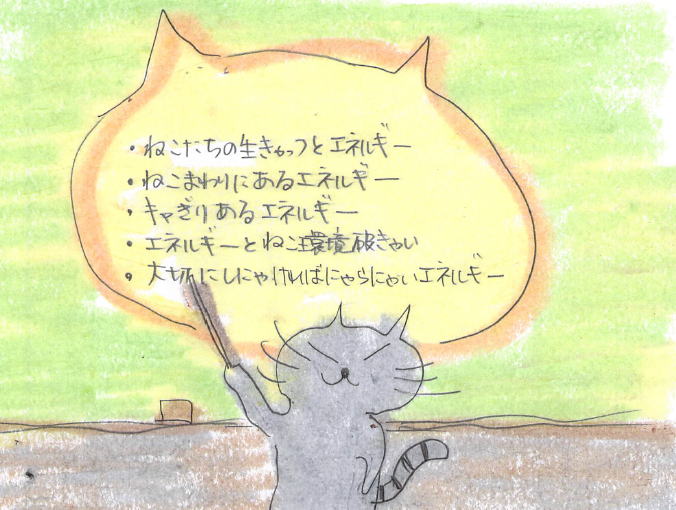 ・ねこたちの生きゃっつとエネルギー
・ねこまわりにあるエネルギー
・キャぎりあるエネルギー
・エネルギーとねこ環境破きゃい
・大切にしにゃければにゃらにゃいエネルギー